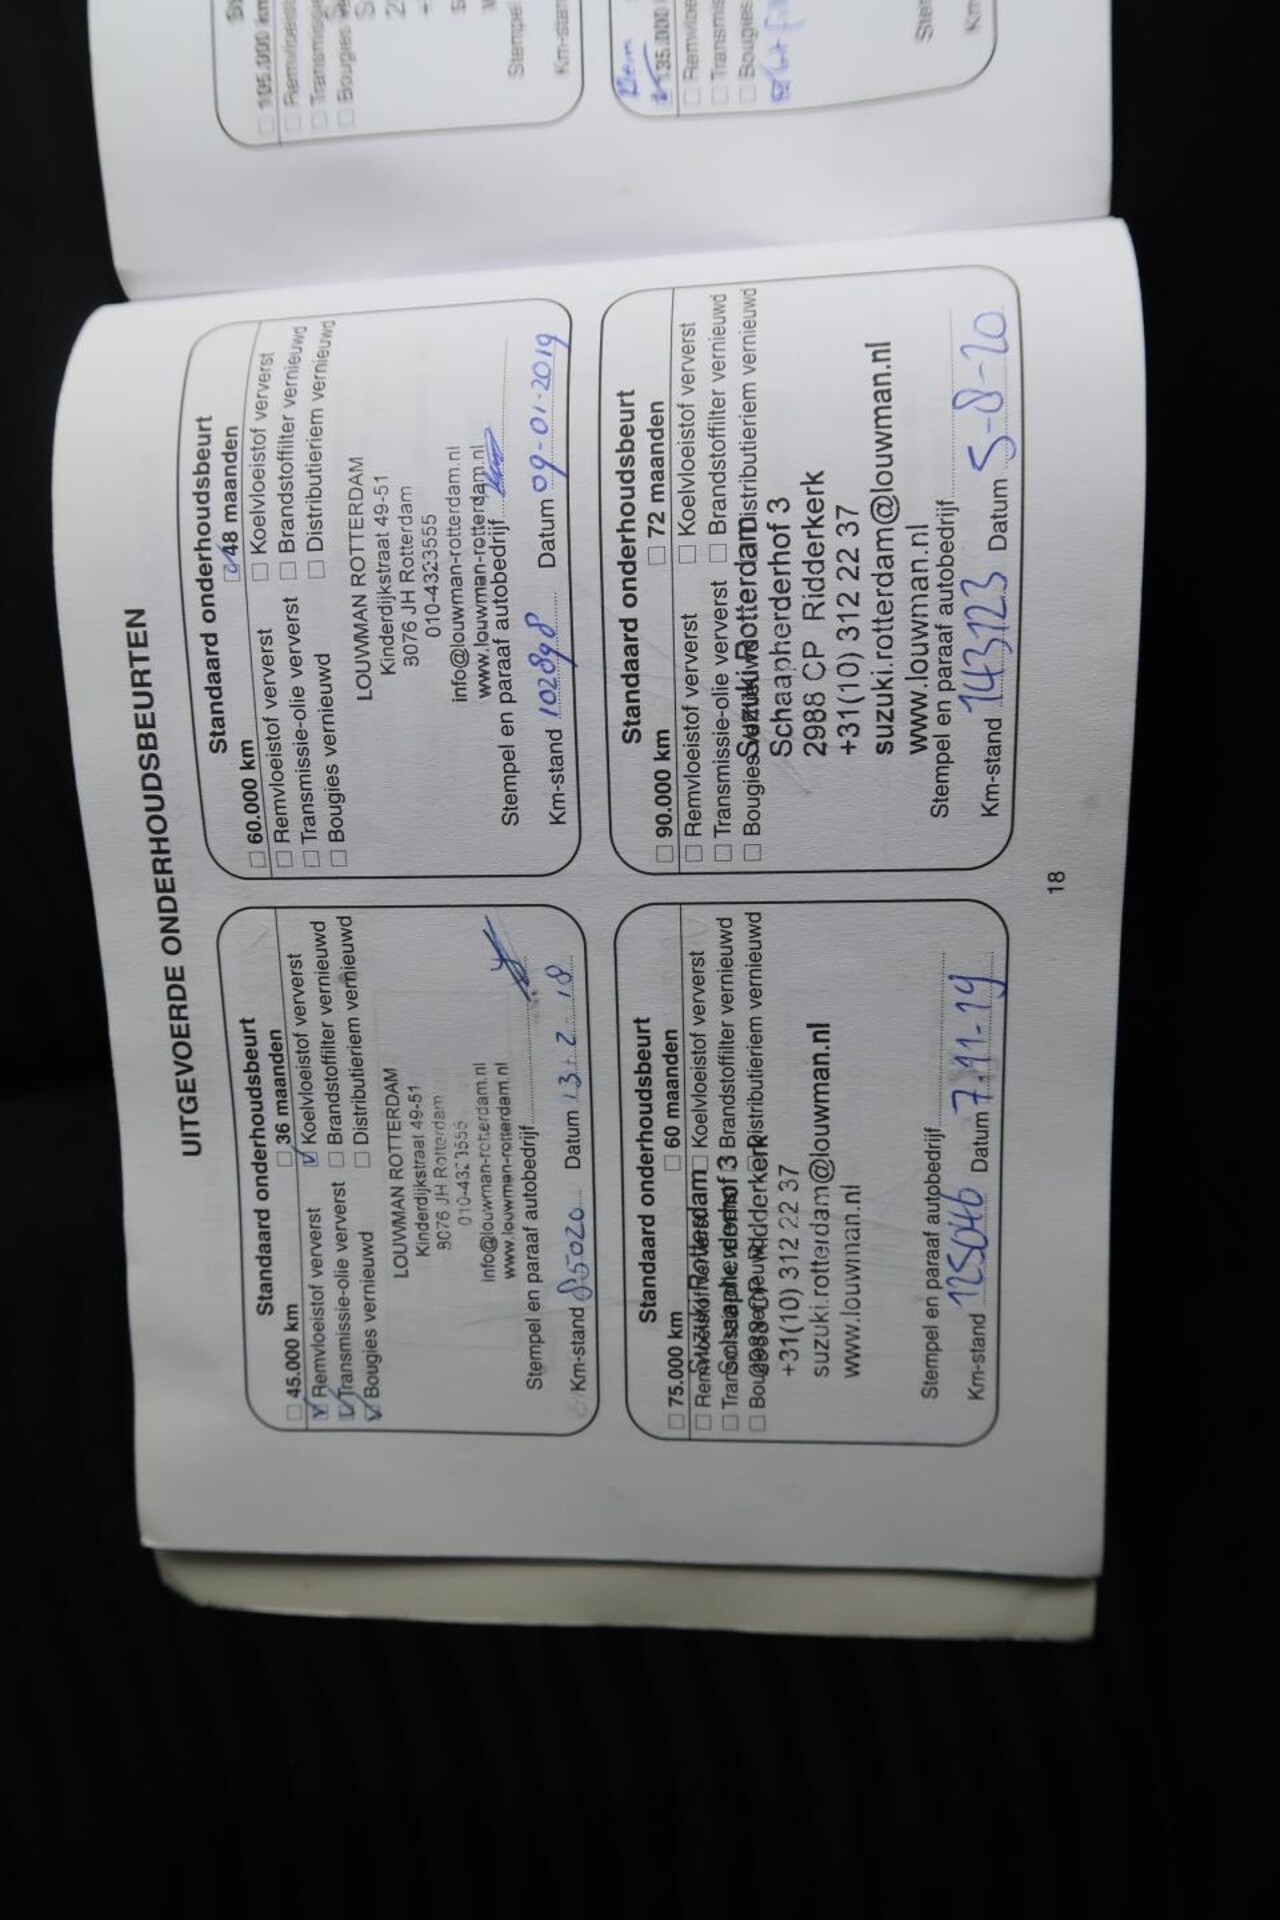 UITGEVOERDE ONDERHOUDSBEURTEN
Standaard onderhoudsbeurt
45.000 km 36 maanden
Remvloeistof ververst Koelvloeistof ververst
Transmissie-olie ververst Brandstoffilter vernieuwd
Bougies vernieuwd Distributieriem vernieuwd
LOUWMAN ROTTERDAM
Kinderdijkstraat 49-51
3076 JH Rotterdam
010-4323555
info@louwman-rotterdam.nl
www.louwman-rotterdam.nl
Stempel en paraaf autobedrijf
Km-stand 85020 Datum 13-2-18
Standaard onderhoudsbeurt
60.000 km 48 maanden
Remvloeistof ververst Koelvloeistof ververst
Transmissie-olie ververst Brandstoffilter vernieuwd
Bougies vernieuwd Distributieriem vernieuwd
LOUWMAN ROTTERDAM
Kinderdijkstraat 49-51
3076 JH Rotterdam
010-4323555
info@louwman-rotterdam.nl
www.louwman-rotterdam.nl
Stempel en paraaf autobedrijf
Km-stand 102898 Datum 09-01-2019
Standaard onderhoudsbeurt
75.000 km 60 maanden
Remvloeistof ververst Koelvloeistof ververst
Transmissie-olie ververst Brandstoffilter vernieuwd
Bougies vernieuwd Distributieriem vernieuwd
Suzuki Rotterdam
Schaapherderhof 3
2988 CP Ridderkerk
+31(10) 312 22 37
suzuki.rotterdam@louwman.nl
www.louwman.nl
Stempel en paraaf autobedrijf
Km-stand 125046 Datum 7-11-19
Standaard onderhoudsbeurt
90.000 km 72 maanden
Remvloeistof ververst Koelvloeistof ververst
Transmissie-olie ververst Brandstoffilter vernieuwd
Bougies vernieuwd Distributieriem vernieuwd
Suzuki Rotterdam
Schaapherderhof 3
2988 CP Ridderkerk
+31(10) 312 22 37
suzuki.rotterdam@louwman.nl
www.louwman.nl
Stempel en paraaf autobedrijf
Km-stand 143123 Datum 5-8-20
18
105.000 km
Remvloeis
Transmissie
Bougies
Stempel
Km-stan
135.000
Remvloe
Transmis
Bougies
Ster
Km